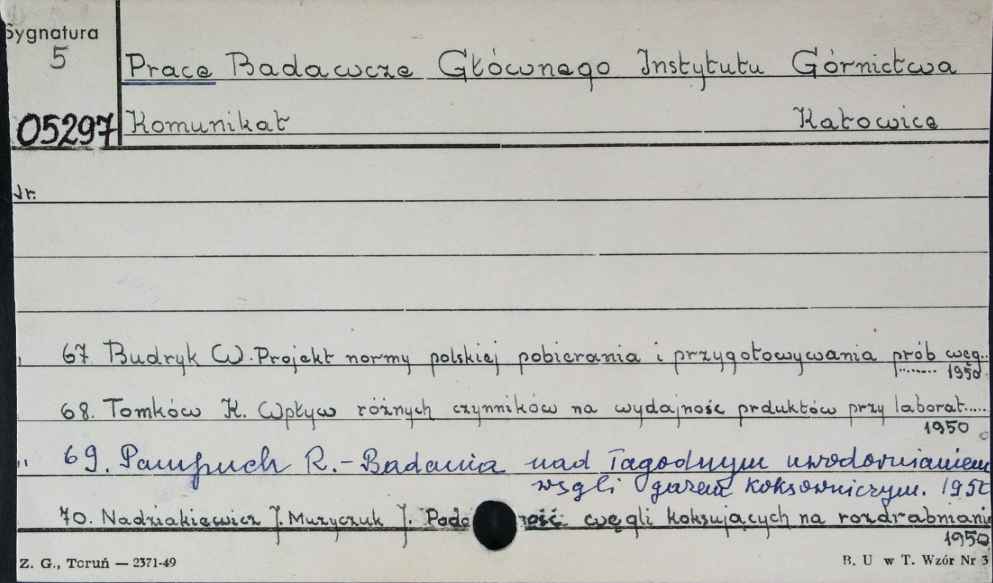 Sygnatura
5
Prace Badawcze Głównego Instytutu Górnictwa
05297 Komunikat Katowice
Nr.
67. Budryk W. Projekt normy polskiej pobierania i przygotowywania prób węg..
........ 1950
68. Tomków K. Wpływ różnych czynników na wydajność prduktów przy laborat.....
1950
" 69. Pampuch R. - Badania nad łagodnym uwodornianiem
węgli gazem koksowniczym. 195
70. Nadziakiewicz J. Muzyczuk J. węgli koksujących na rozdrabniani
1950
Z. G., Toruń — 2371-49 B. U w T. Wzór Nr 3